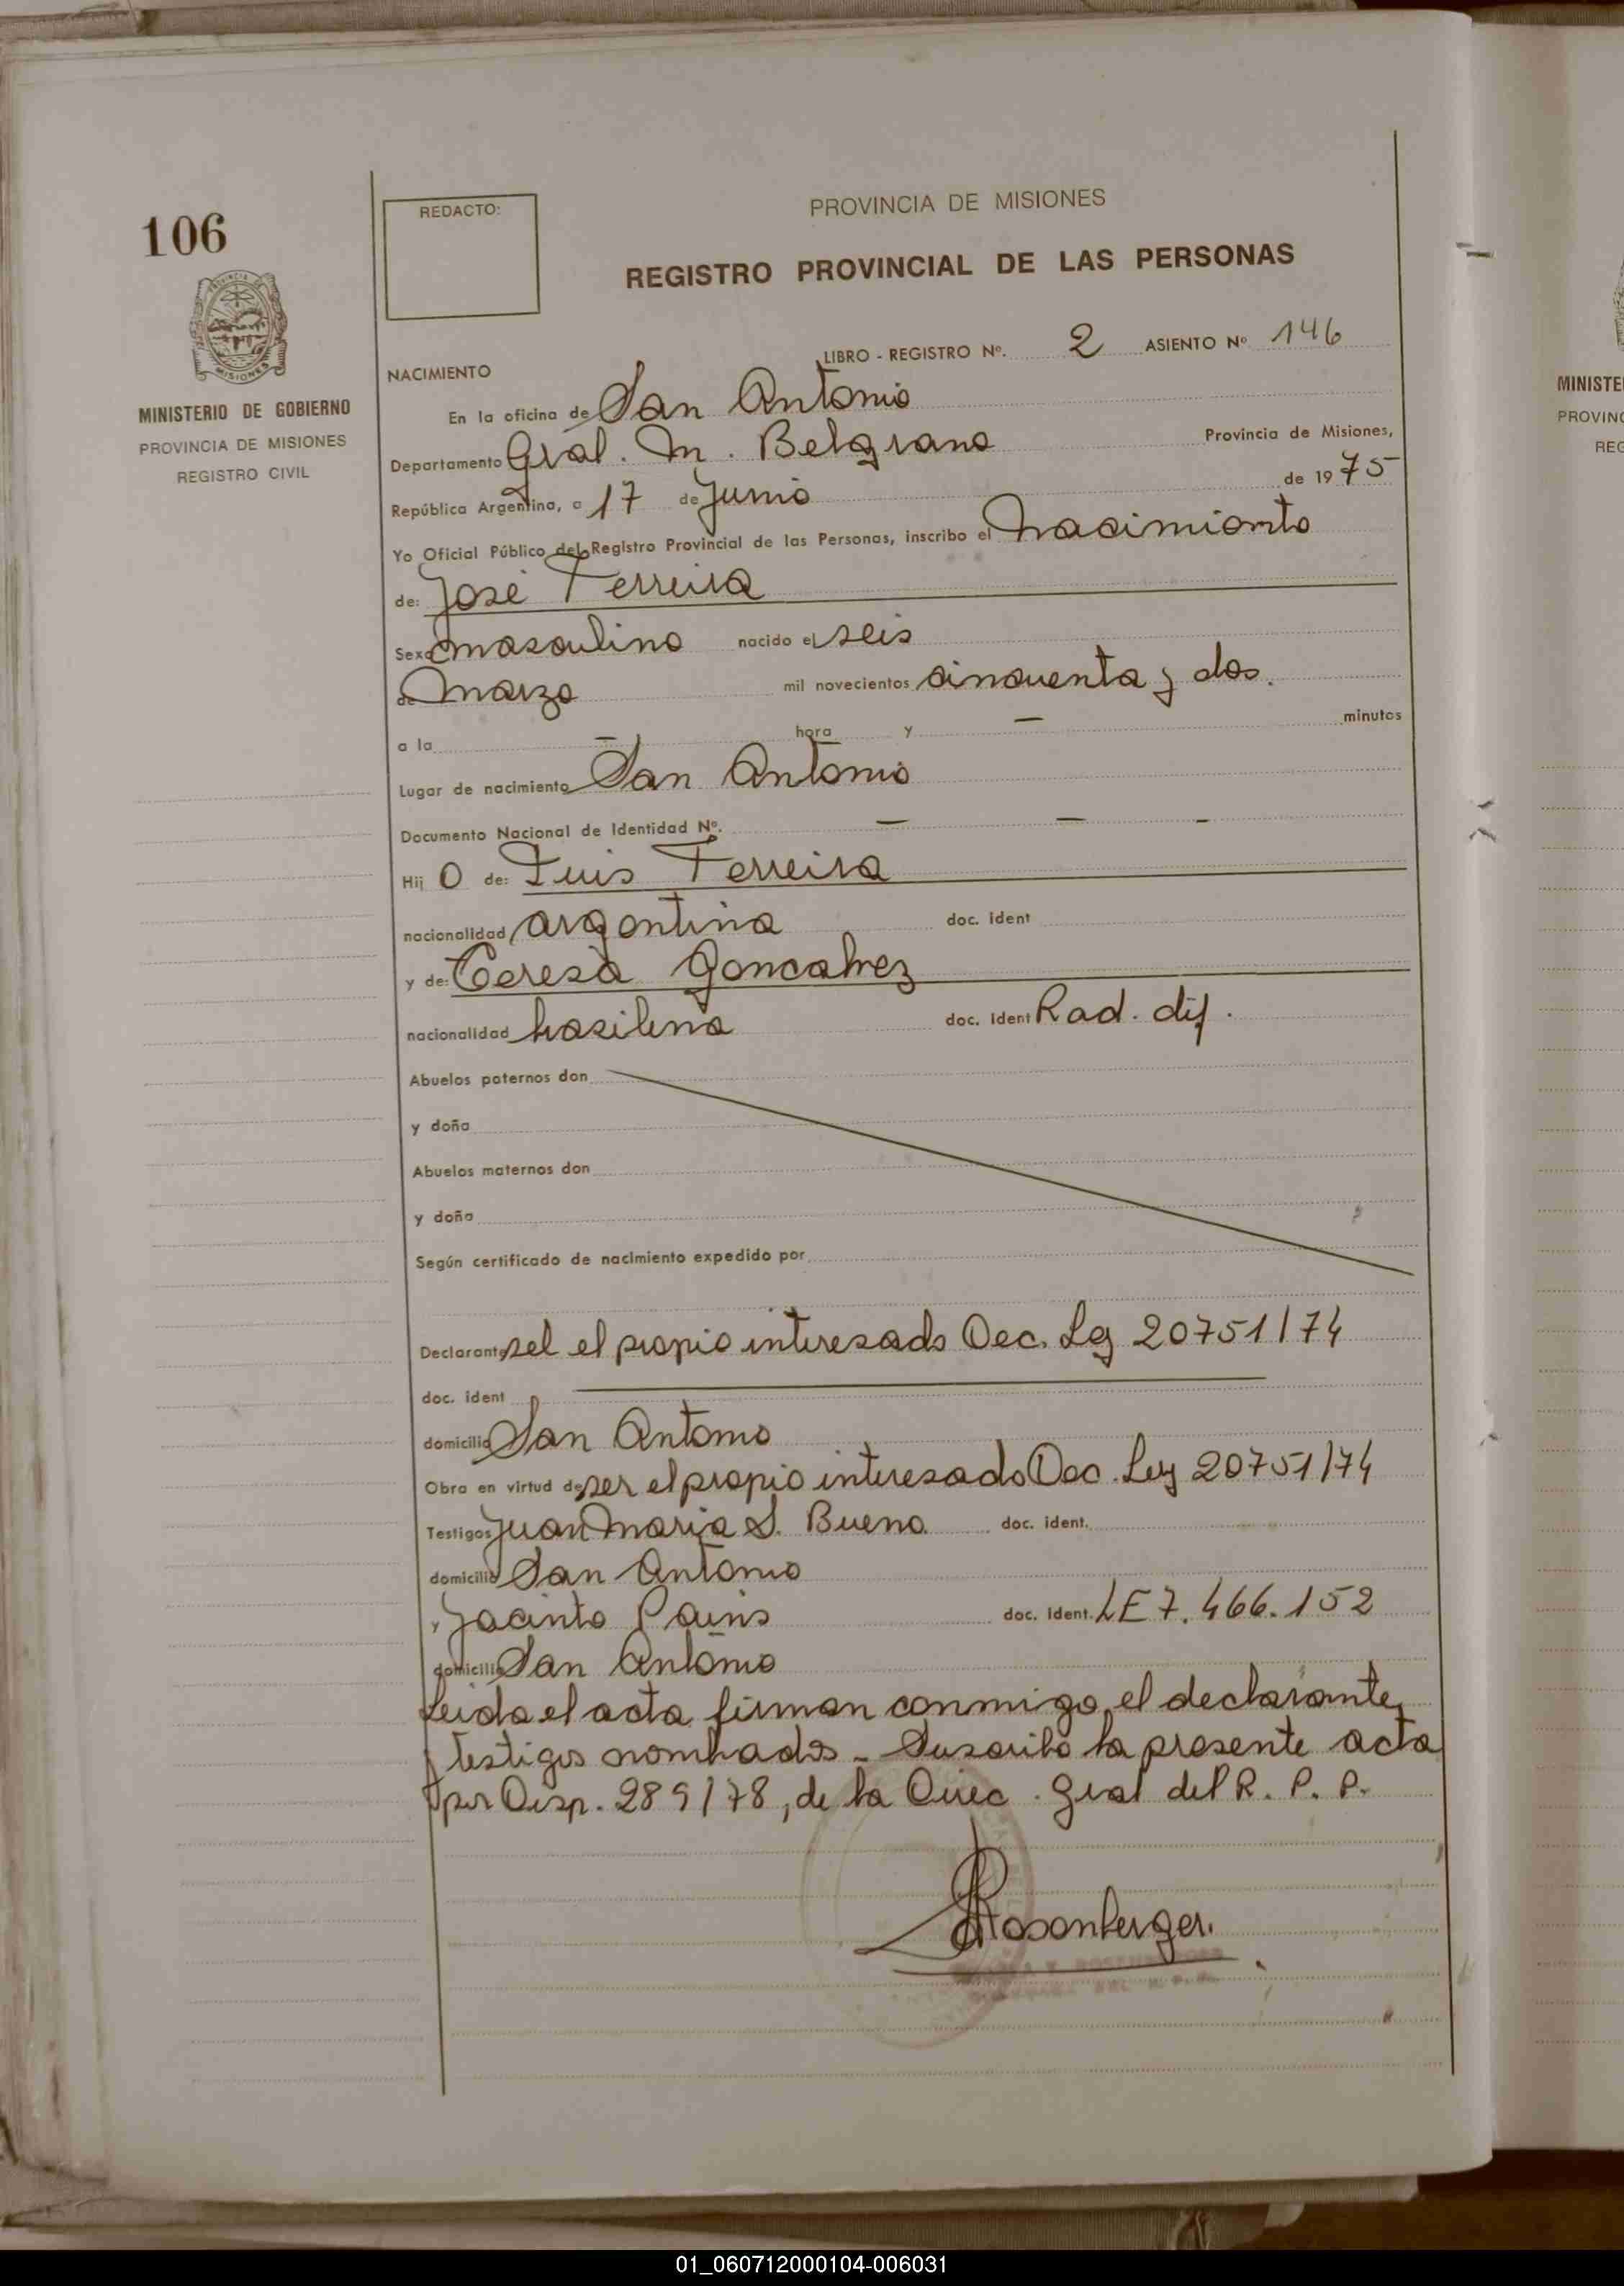 106
REDACTO:
PROVINCIA DE MISIONES
REGISTRO PROVINCIAL DE LAS PERSONAS
MINISTERIO DE GOBIERNO
PROVINCIA DE MISIONES
REGISTRO CIVIL
LIBRO - REGISTRO Nº. 2 ASIENTO Nº 146
NACIMIENTO
En la oficina de San Antonio
Departamento Gral. M. Belgrano Provincia de Misiones,
República Argentina, a 17 de Junio de 1975
Yo Oficial Público del Registro Provincial de las Personas, inscribo el nacimiento
de: José Ferreira
Sexo masculino nacido el seis
de marzo mil novecientos cincuenta y dos.
a la — hora y — minutos
Lugar de nacimiento San Antonio
Documento Nacional de Identidad Nº. — — -
Hij o de: Luis Ferreira
nacionalidad argentina doc. ident
y de: Teresa Goncalvez
nacionalidad brasilena doc. ident Rad. dif.
Abuelos paternos don
y doña
Abuelos maternos don
y doña
Según certificado de nacimiento expedido por
Declarante sel el propio interesado Dec. Ley 20751/74
doc. ident
domicilio San Antonio
Obra en virtud de ser el propio interesado Dec. Ley 20751/74
Testigos Juan Maria S. Bueno doc. ident.
domicilio San Antonio
y Jacinto doc. ident. LE 7.466.152
domicilio San Antonio
Leida el acta firman conmigo, el declarante
y testigos nombrados - Suscribo la presente acta
por Disp. 289/78, de la Direc. Gral del R. P. P.
Rosenberger.
MINISTE
PROVINC
REG
01_060712000104-006031